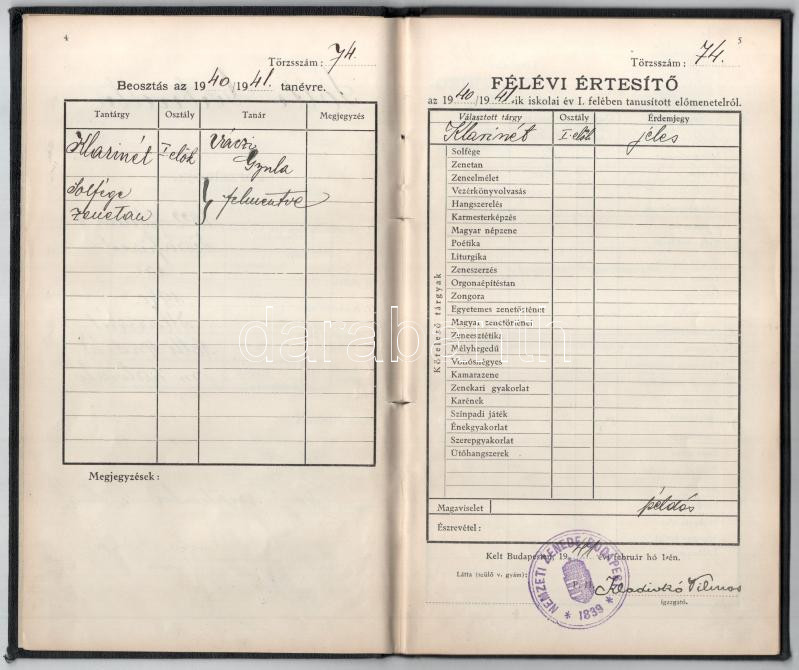 4
Törzsszám: 74.
Beosztás az 1940/1941. tanévre.
Tantárgy Osztály Tanár Megjegyzés
Klarinét I. elők Váczi Gyula
Solfége
zenetan } felmentve
Megjegyzések:
5
Törzsszám: 74.
FÉLÉVI ÉRTESÍTŐ
az 1940/1941-ik iskolai év I. felében tanusított előmenetelről.
Választott tárgy Osztály Érdemjegy
Klarinét I. elők jeles
Kötelező tárgyak
Solfége
Zenetan
Zeneelmélet
Vezérkönyvolvasás
Hangszerelés
Karmesterképzés
Magyar népzene
Poétika
Liturgika
Zeneszerzés
Orgonaépítéstan
Zongora
Egyetemes zenetörténet
Magyar zenetörténet
Zeneesztétika
Mélyhegedű
Vonósnégyes
Kamarazene
Zenekari gyakorlat
Karének
Színpadi játék
Énekgyakorlat
Szerepgyakorlat
Ütőhangszerek
Magaviselet példás
Észrevétel:
Kelt Budapesten, 1941 évi február hó 1-én.
Látta (szülő v. gyám):
P. H.
Kladivkó Vilmos
igazgató.
NEMZETI ZENEDE BUDAPEST
* 1839 *
darabanth